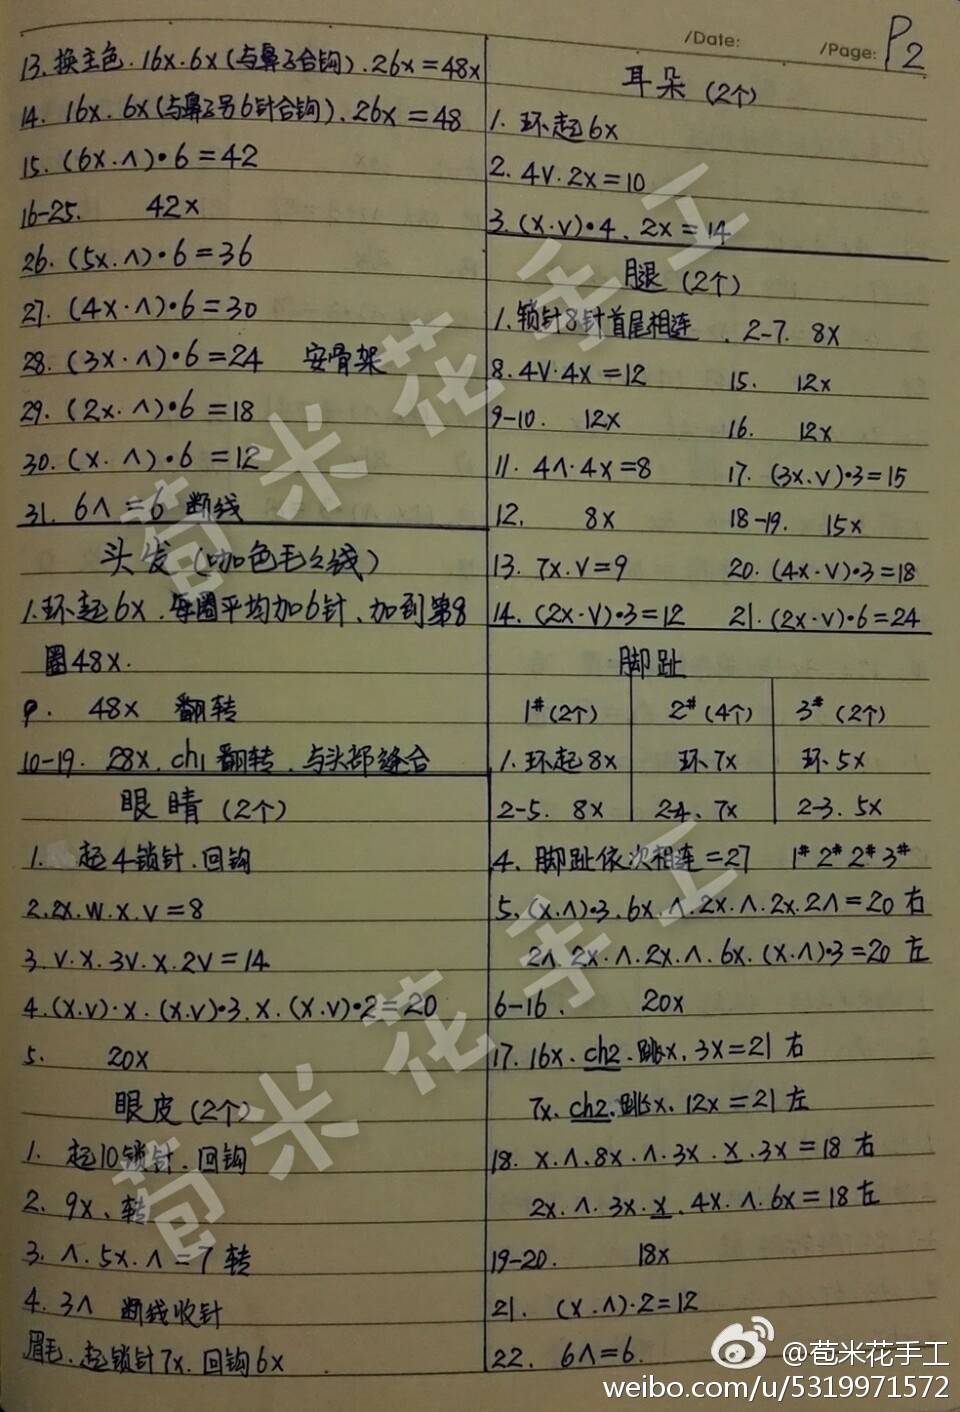 /Date:
/Page: P2
13. 换主色. 16x. 6x(与鼻子合钩). 26x=48x
14. 16x. 6x(与鼻子另6针合钩). 26x=48
15. (6x.∧)•6=42
16-25. 42x
26. (5x.∧)•6=36
27. (4x.∧)•6=30
28. (3x.∧)•6=24 安骨架
29. (2x.∧)•6=18
30. (x.∧)•6=12
31. 6∧=6 断线
头发(咖色毛线)
1.环起6x. 每圈平均加6针、加到第8
圈48x.
9. 48x 翻转
10-19. 28x. ch1 翻转. 与头部缝合
眼睛(2个)
1. 起4锁针.回钩
2.2x.w.x.v=8
3.v.x.3v.x.2v=14
4.(x.v).x.(x.v)•3.x.(x.v)•2=20
5. 20x
眼皮(2个)
1. 起10锁针.回钩
2. 9x、转
3. ∧.5x.∧=7 转
4. 3∧ 断线收针
眉毛.起锁针7x.回钩6x
耳朵(2个)
1. 环起6x
2. 4v.2x=10
3. (x.v)•4、2x=14
腿(2个)
1.锁针8针首尾相连. 2-7. 8x
8. 4v.4x=12 15. 12x
9-10. 12x 16. 12x
11. 4∧.4x=8 17. (3x.v)•3=15
12. 8x 18-19. 15x
13. 7x.v=9 20. (4x.v)•3=18
14. (2x.v)•3=12 21. (2x.v)•6=24
脚趾
1#(2个) 2#(4个) 3#(2个)
1.环起8x 环7x 环.5x
2-5. 8x 2-4、7x 2-3.5x
4. 脚趾依次相连=27 1# 2# 2# 3#
5. (x.∧)•3.6x.∧.2x.∧.2x.2∧=20 右
2∧.2x.∧.2x.∧.6x.(x.∧)•3=20 左
6-16. 20x
17. 16x. ch2.跳x.3x=21 右
7x. ch2.跳x.12x=21左
18. x.∧.8x.∧.3x.x.3x=18 右
2x.∧.3x.x.4x.∧.6x=18左
19-20. 18x
21. (x.∧).2=12
22. 6∧=6.
苞米花手工
苞米花手工
@苞米花手工
weibo.com/u/5319971572